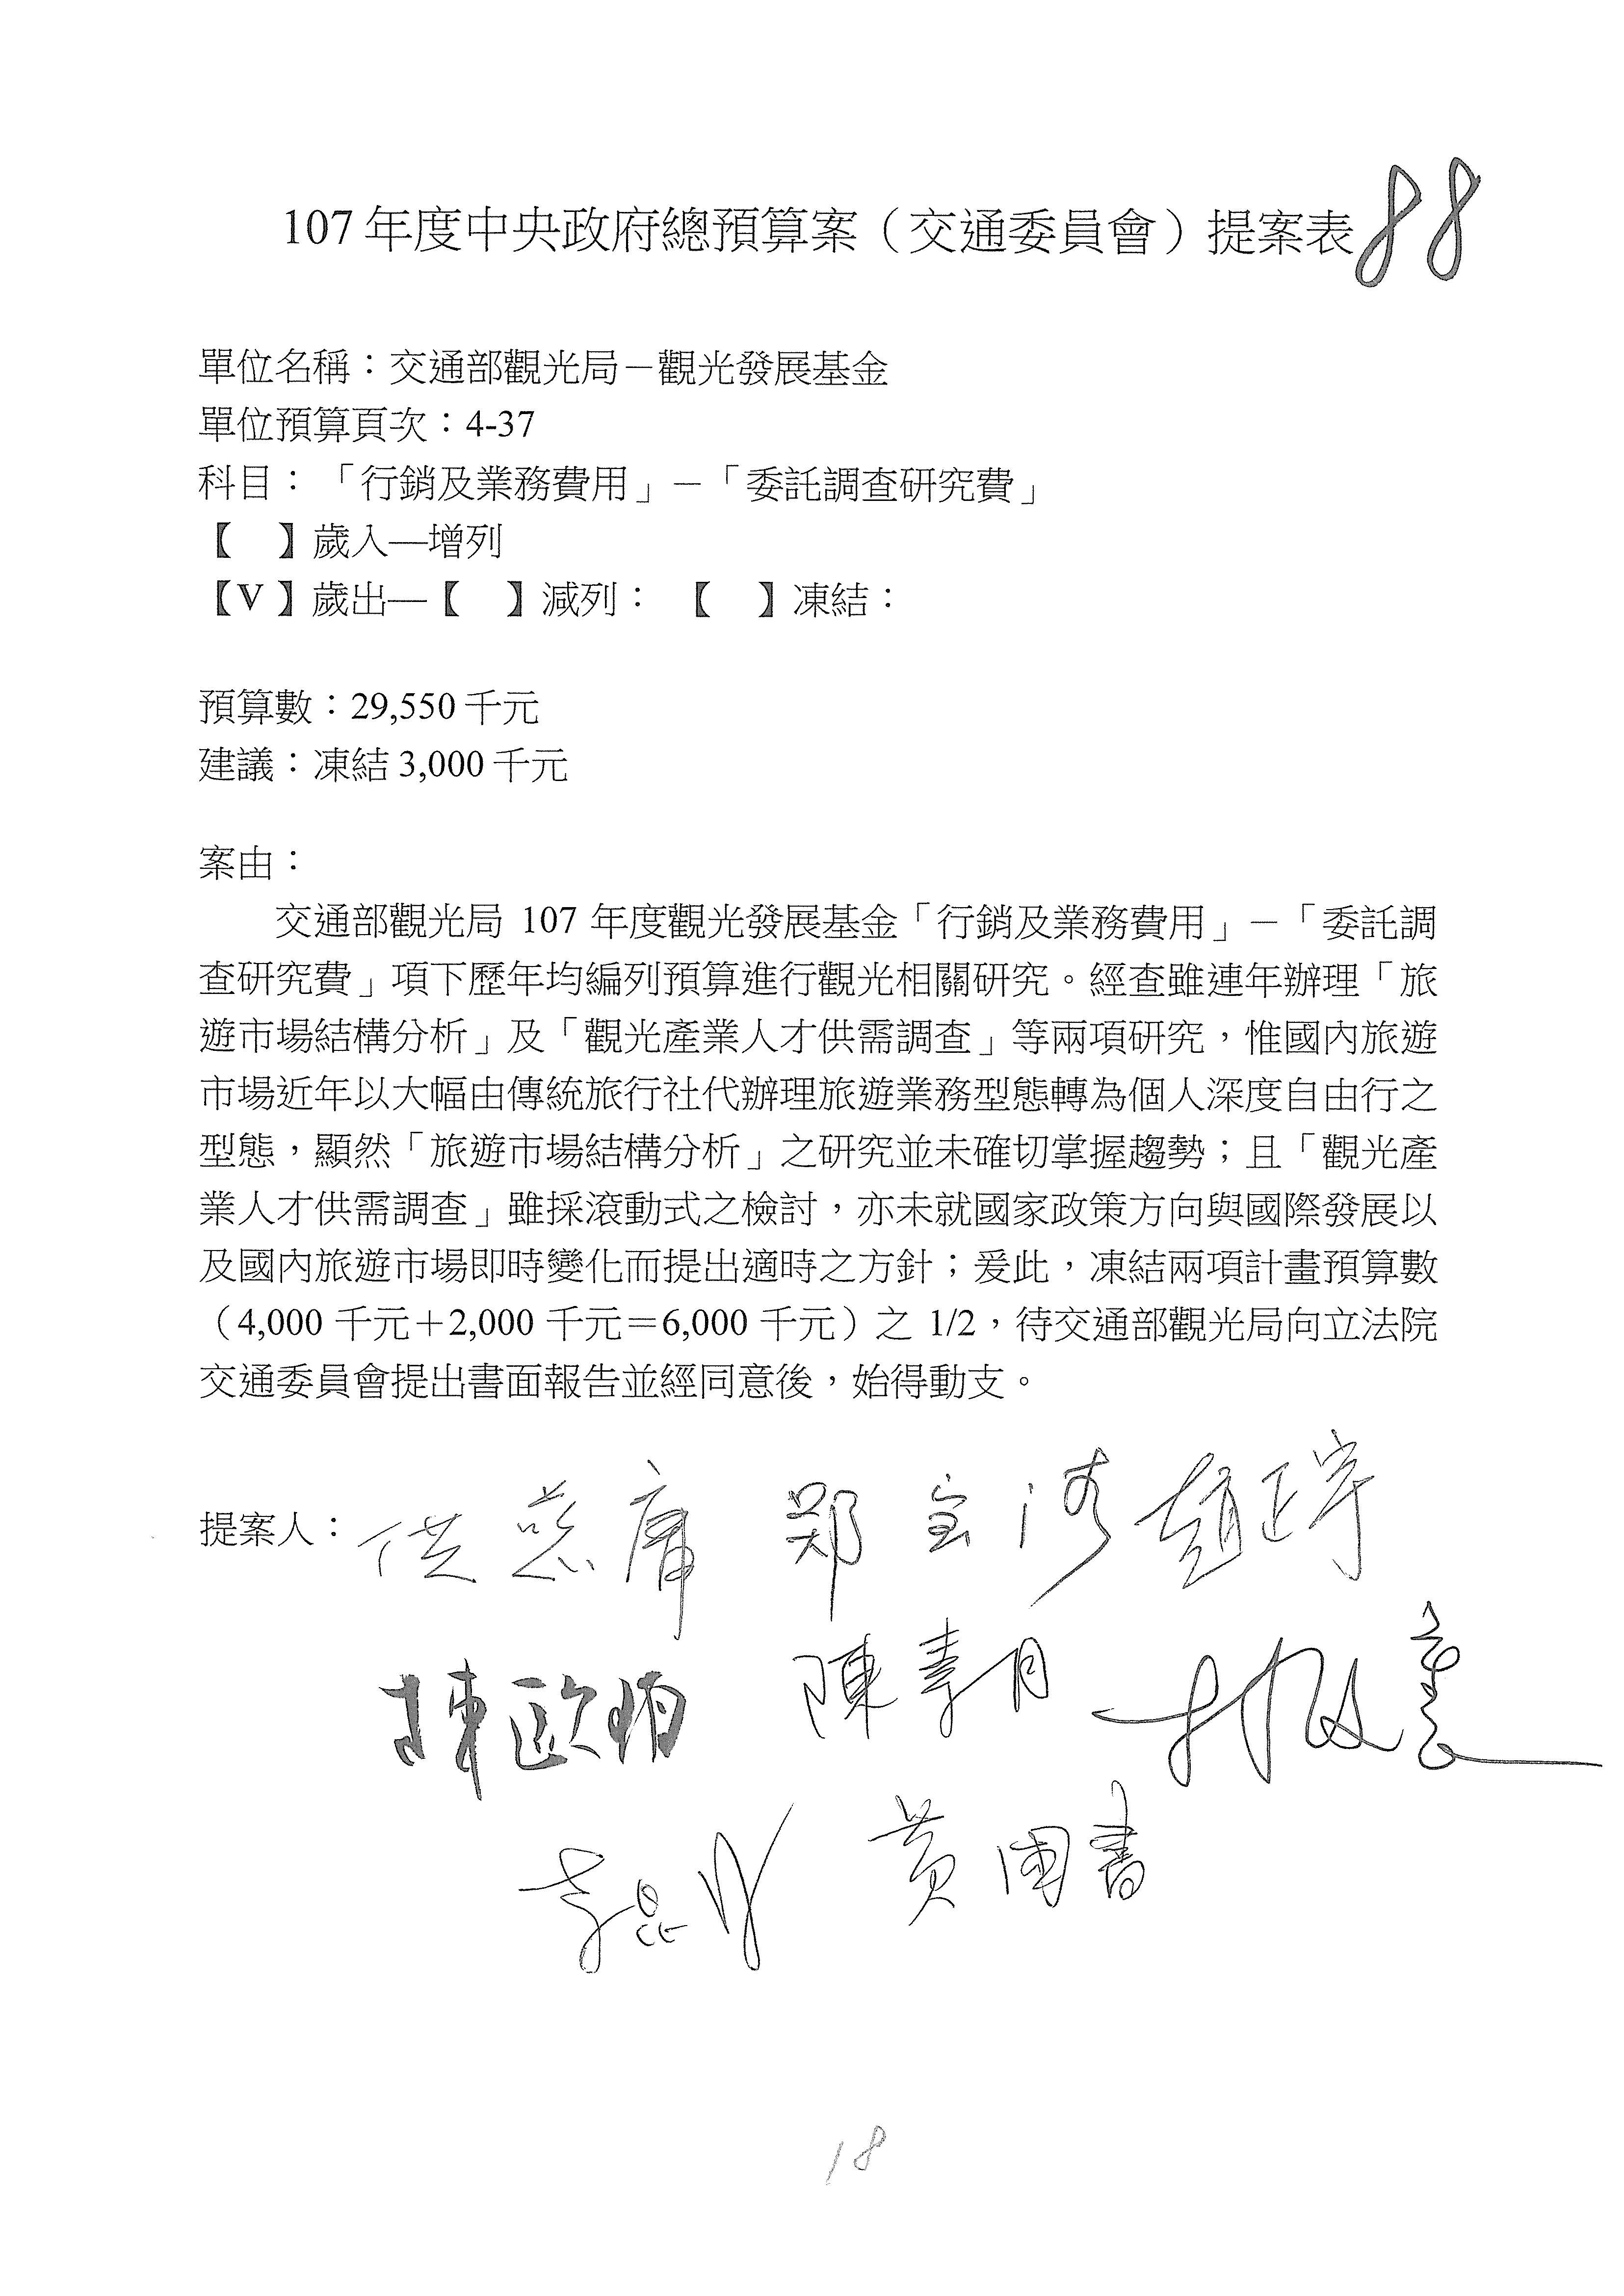 107年度中央政府總預算案（交通委員會）提案表 88
單位名稱：交通部觀光局－觀光發展基金
單位預算頁次：4-37
科目：「行銷及業務費用」－「委託調查研究費」
【　】歲入—增列
【V】歲出—【　】減列：　【　】凍結：
預算數：29,550千元
建議：凍結3,000千元
案由：
交通部觀光局 107 年度觀光發展基金「行銷及業務費用」－「委託調
查研究費」項下歷年均編列預算進行觀光相關研究。經查雖連年辦理「旅
遊市場結構分析」及「觀光產業人才供需調查」等兩項研究，惟國內旅遊
市場近年以大幅由傳統旅行社代辦理旅遊業務型態轉為個人深度自由行之
型態，顯然「旅遊市場結構分析」之研究並未確切掌握趨勢；且「觀光產
業人才供需調查」雖採滾動式之檢討，亦未就國家政策方向與國際發展以
及國內旅遊市場即時變化而提出適時之方針；爰此，凍結兩項計畫預算數
（4,000 千元＋2,000 千元＝6,000 千元）之 1/2，待交通部觀光局向立法院
交通委員會提出書面報告並經同意後，始得動支。
提案人：洪慈庸 鄭宝清 趙正宇
陳歐珀 陳素月
李昆澤 黃國書
18